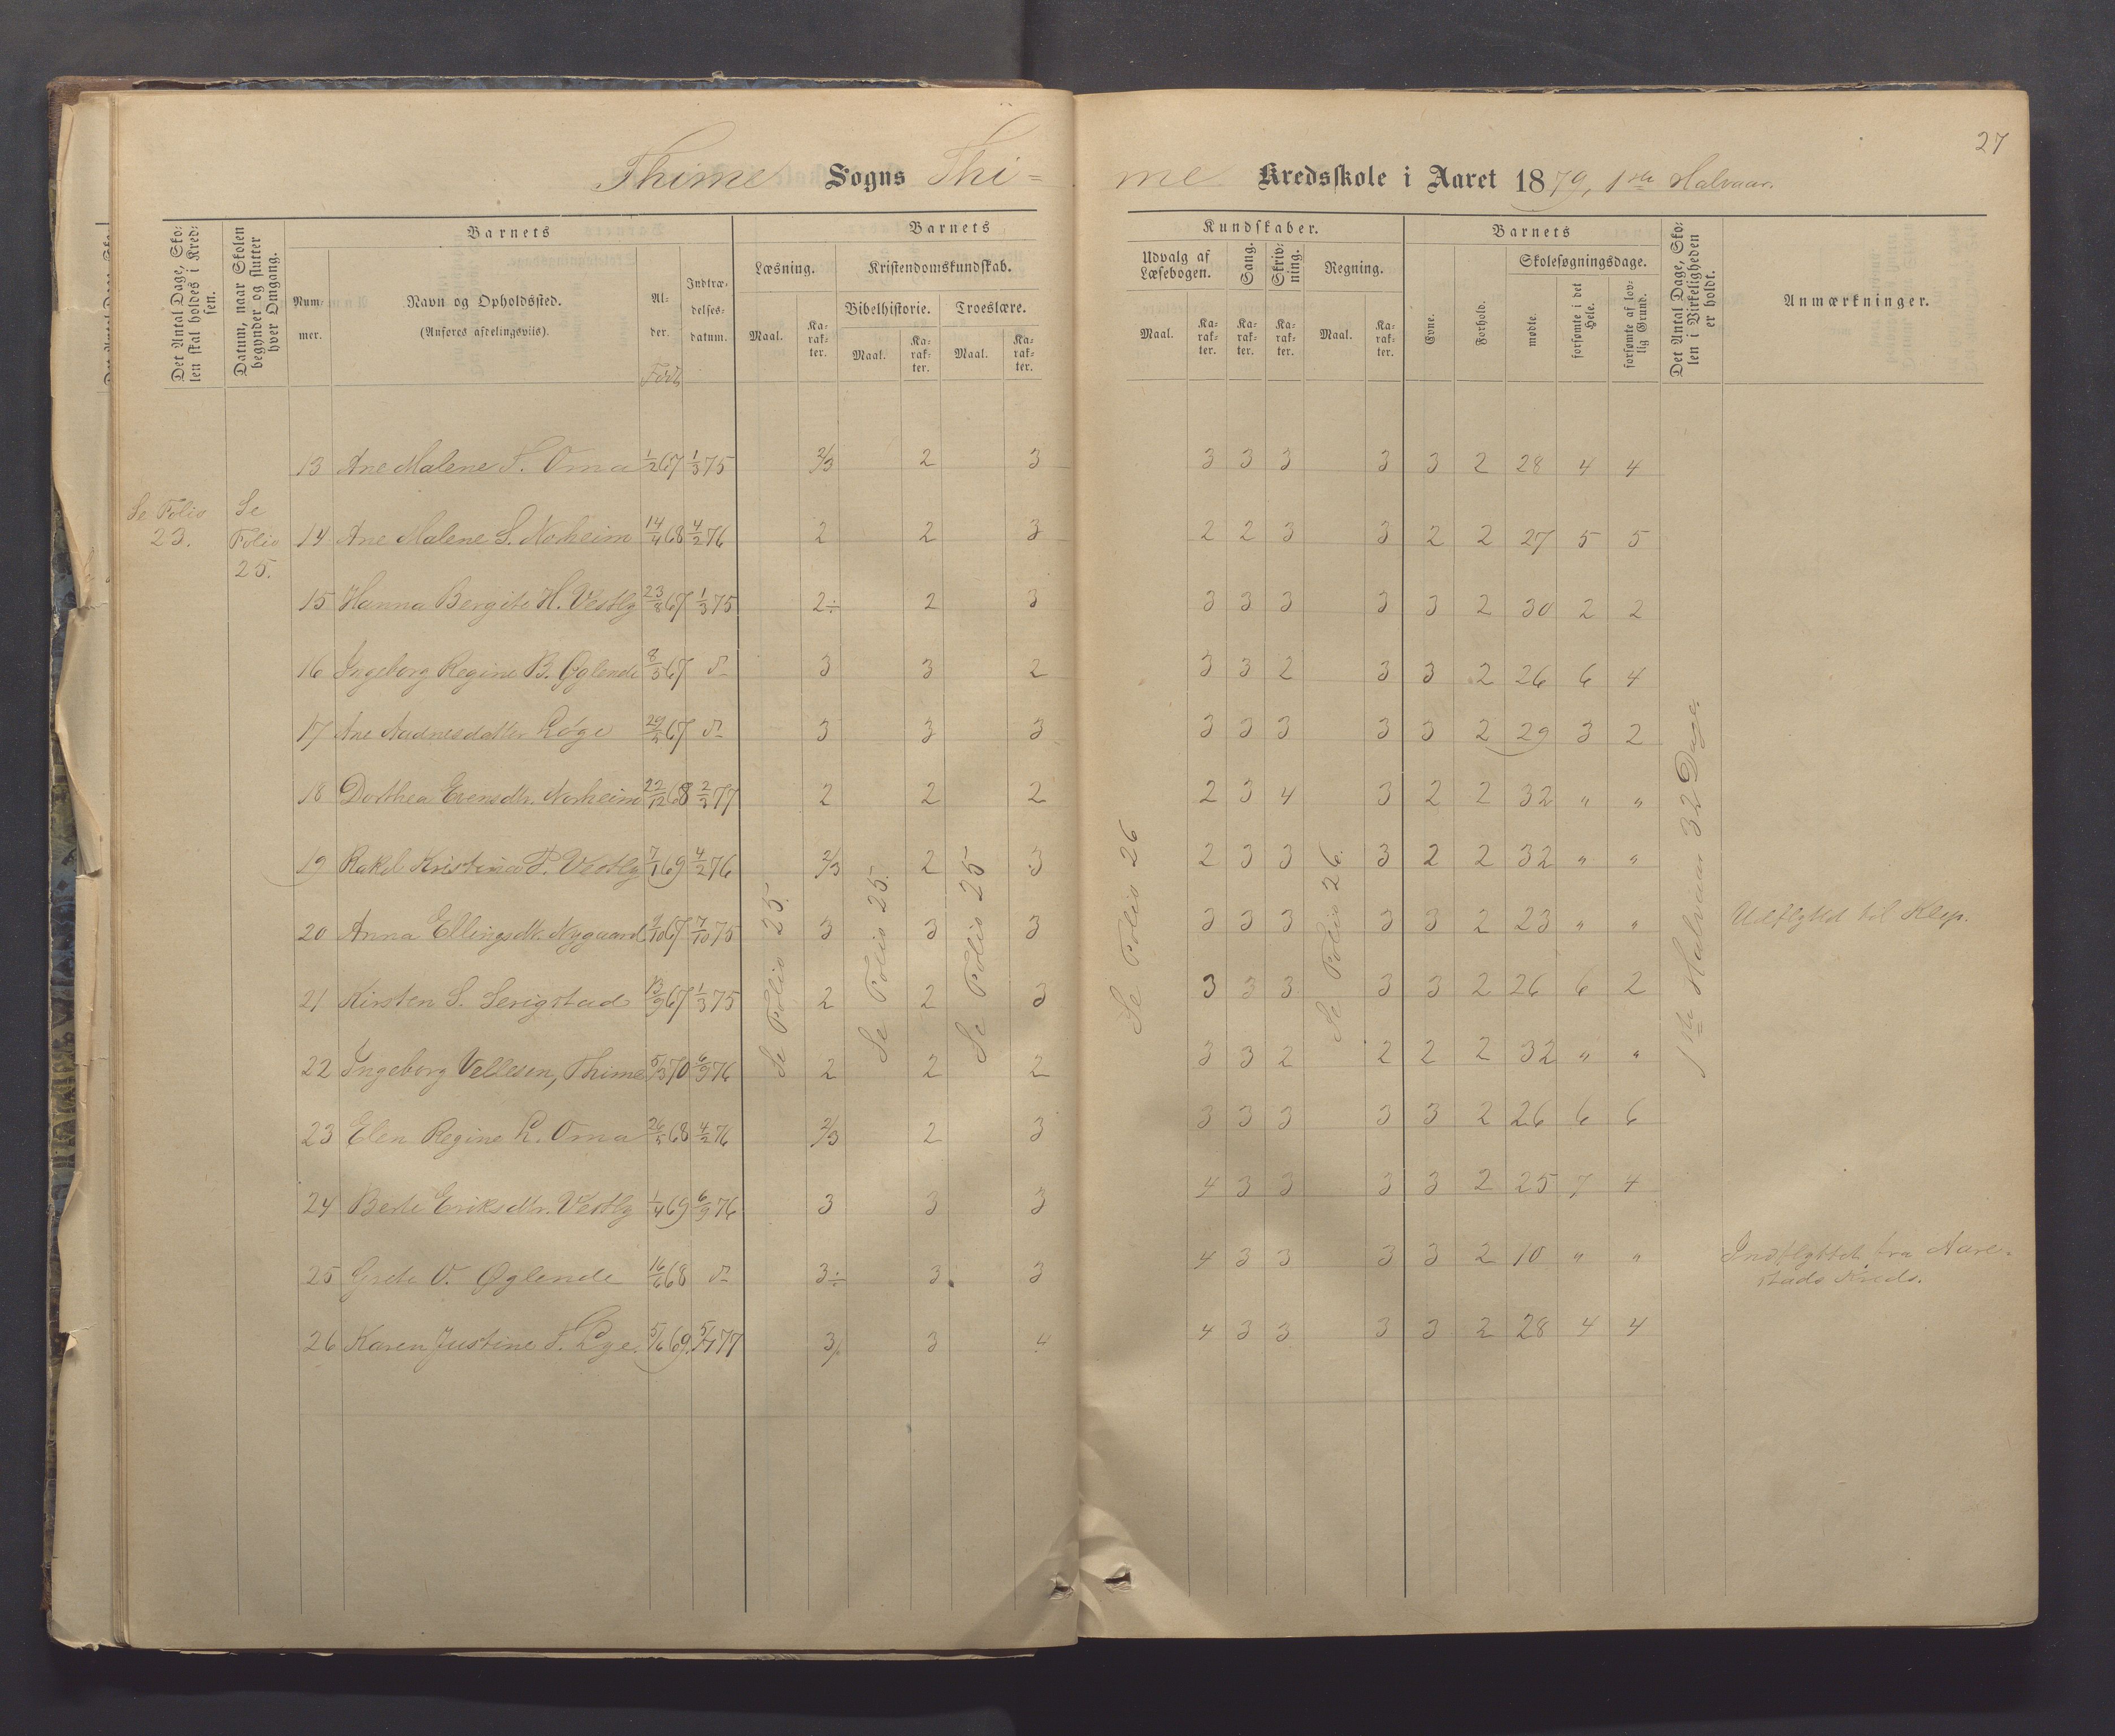 27
Thime Sogns Thi= me Kredsskole i Aaret 1879, 1ste Halvaar.
Det Antal Dage, Sko-
len skal holdes i Kred-
sen.
Datum, naar Skolen
begynder og slutter
hver Omgang.
Barnets
Num-
mer.
Navn og Opholdssted.
(Anføres afdelingsviis).
Al-
der.
Født
Indtræ-
delses-
datum.
Barnets
Læsning.
Maal.
Ka-
rak-
ter.
Kristendomskundskab.
Bibelhistorie.
Maal.
Ka-
rak-
ter.
Troeslære.
Maal.
Ka-
rak-
ter.
Kundskaber.
Udvalg af
Læsebogen.
Maal.
Ka-
rak-
ter.
Sang.
Ka-
rak-
ter.
Skriv-
ning.
Ka-
rak-
ter.
Regning.
Maal.
Ka-
rak-
ter.
Barnets
Evne.
Forhold.
Skolesøgningsdage.
mødte.
forsømte i det
Hele.
forsømte af lov-
lig Grund.
Det Antal Dage, Sko-
len i Virkeligheden
er holdt.
Anmærkninger.
Se Folio
23.
Se
Folio
25.
13 Ane Malene T. Oma 1/2 67 1/3 75 2/3 2 3 3 3 3 3 3 2 28 4 4
14 Ane Malene S. Norheim 14/4 68 4/2 76 2 2 3 2 2 3 3 2 2 27 5 5
15 Hanna Bergite H. Vestly 23/8 67 1/3 75 2÷ 2 3 3 3 3 3 3 2 30 2 2
16 Ingeborg Regine B. Øglende 8/3 67 d⁰ 3 3 2 3 3 2 3 3 2 26 6 4
17 Ane Aadnesdatter Løge 29/5 67 d⁰ 3 3 3 3 3 3 3 3 2 29 3 2
18 Dorthea Evensdtr. Norheim 22/12 68 2/2 77 2 2 2 2 3 4 3 2 2 32 " "
19 Rakel Kristina P. Vestly 7/1 69 4/2 76 2/3 2 3 2 3 3 3 2 2 32 " "
20 Anna Ellingsdtr. Nygaard 9/10 67 7/10 75 3 3 3 3 3 3 3 3 2 23 " " Udflyttd til Klep.
21 Kirsten S. Serigstad 13/9 67 1/3 75 2 2 3 3 3 3 3 3 2 26 6 2
22 Ingeborg Vellesen, Thime 5/3 70 6/9 76 2 2 2 3 3 2 2 2 2 32 " "
23 Elen Regine L. Oma 26/5 68 4/2 76 2/3 2 3 3 3 3 3 3 2 26 6 6
24 Berte Eriksdtr. Vestly 1/4 69 6/9 76 3 3 3 4 3 3 3 3 2 25 7 4
25 Grete V. Øglende 16/6 68 d⁰ 3÷ 3 3 4 3 3 3 3 2 10 " " Indflyttet fra Aare-
stads Kreds.
26 Karen Justine T. Lye. 5/6 69. 5/7 77 3 3 4 4 3 3 3 3 2 28 4 4
Se Folio 25.
Se Folio 25.
Se Folio 25
Se Folio 26
Se Folio 26.
1ste Halvaar 32 Dage.